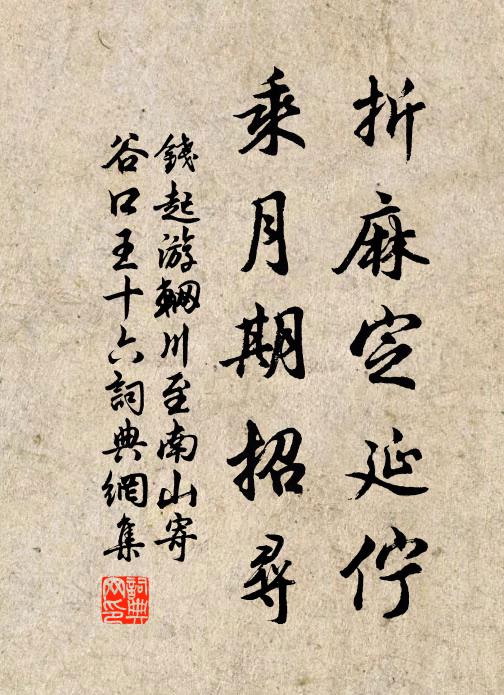 折麻定延佇
乘月期招尋
錢起游輞川至南山寄
谷口王十六詞典網集
詞典网印